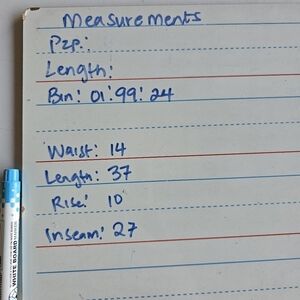 Measurements
Pzp:
Length:
Bin: 01:99:24
Waist: 14
Length: 37
Rise: 10
Inseam: 27
WHITE BOARD